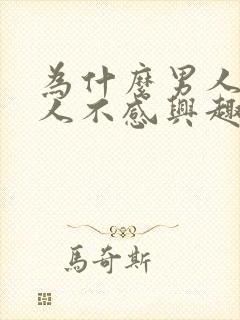 為什麼男人
人不感興趣
馬奇斯